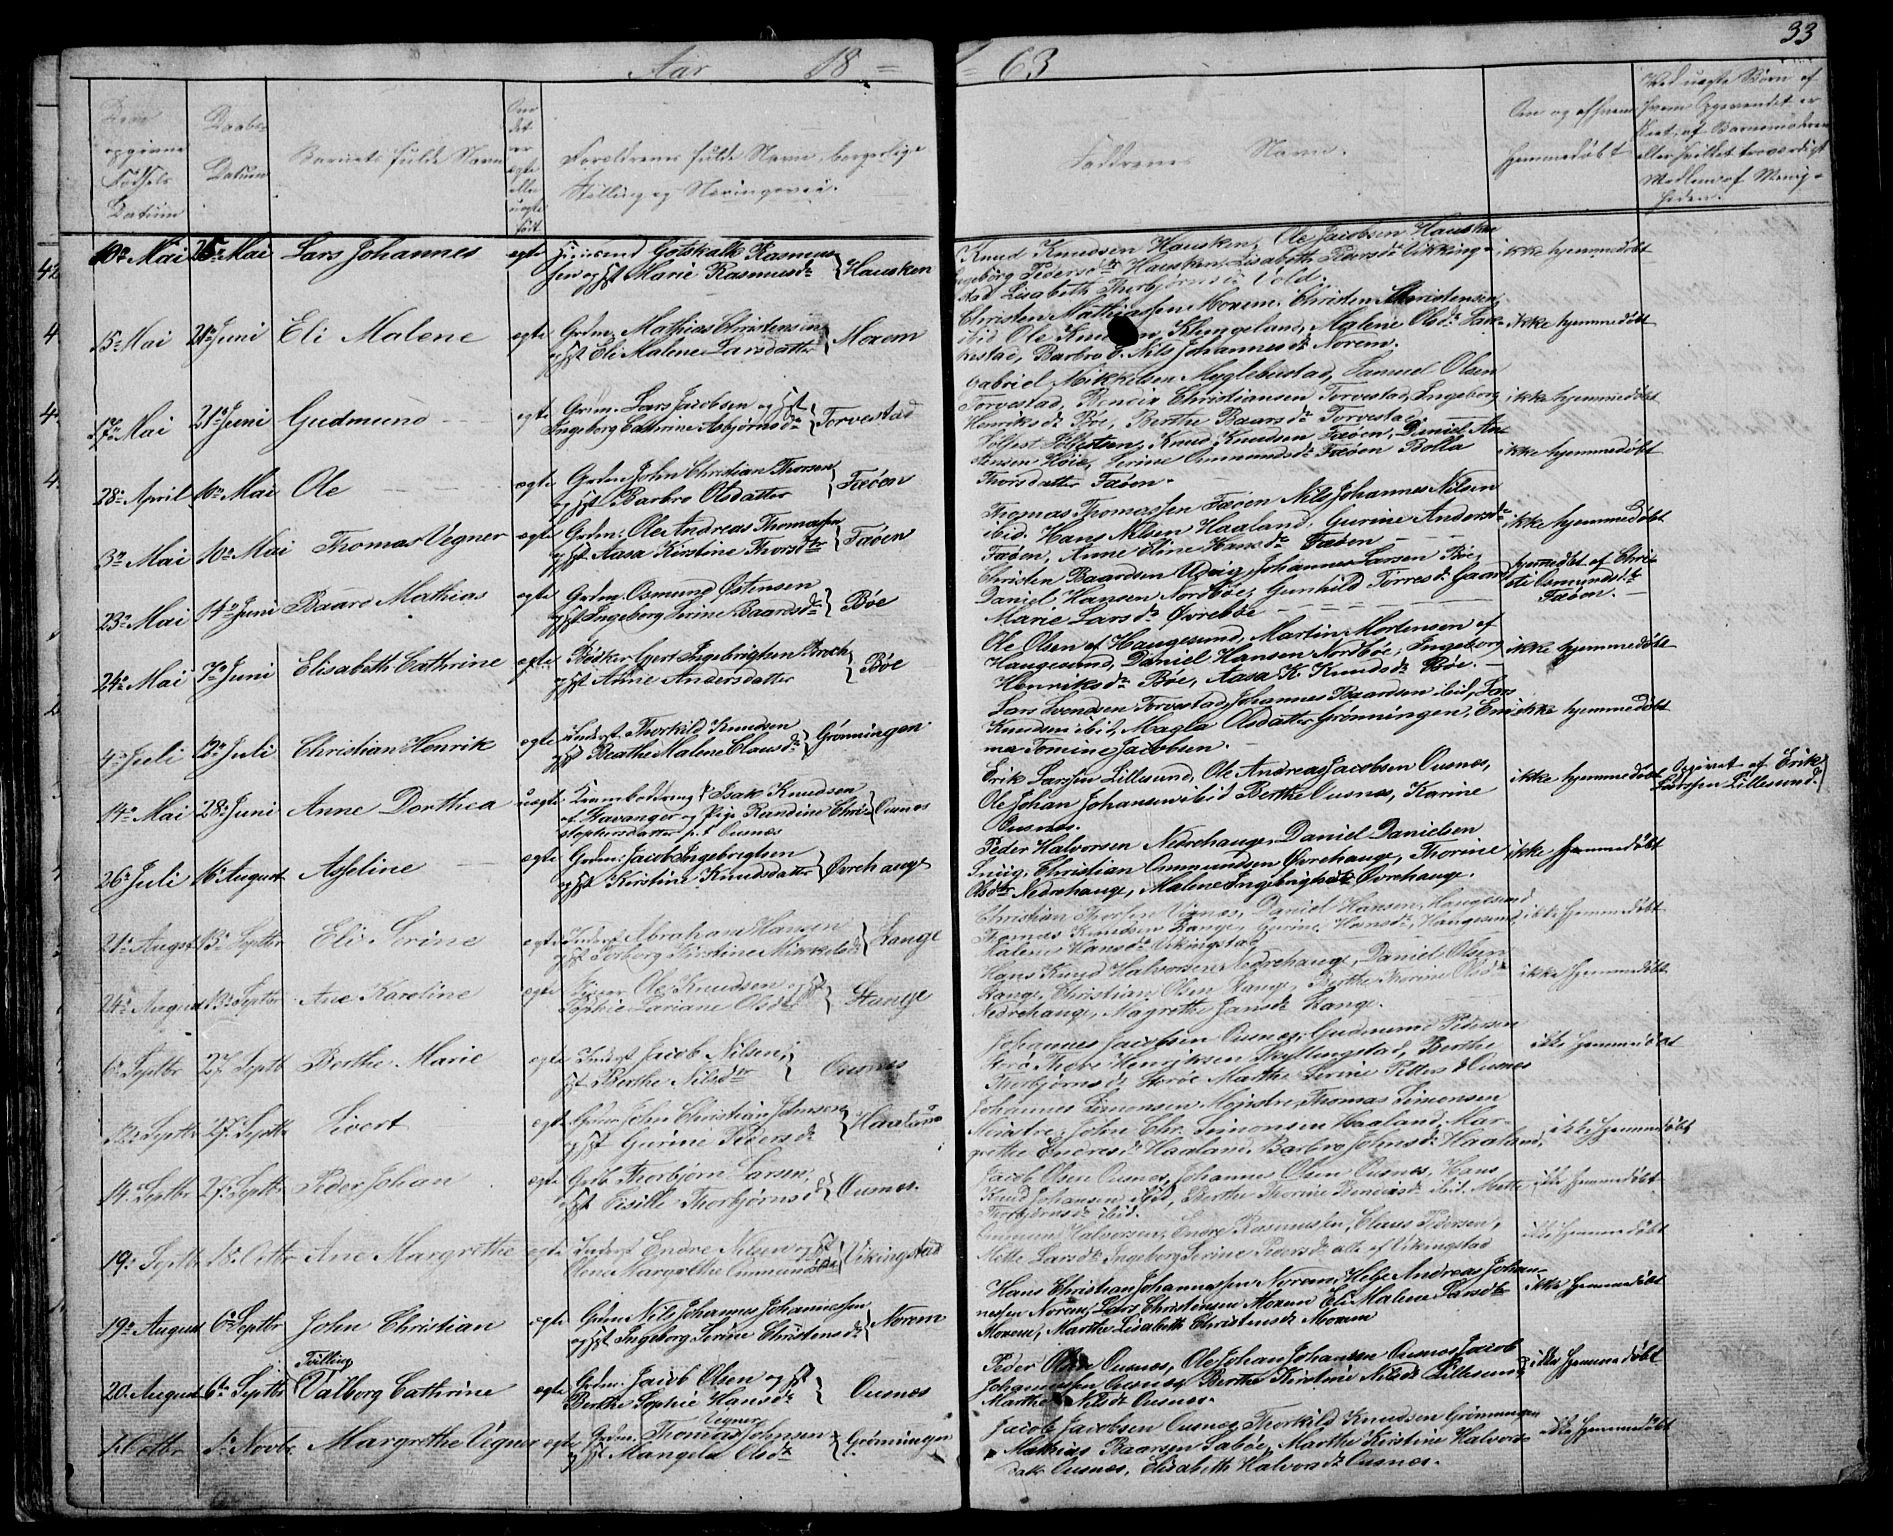 33
Aar 18 = = 63
Barnets fulde Navn
Forældrenes fulde Navn, borgerlige
Stilling og Næringsvei.
Faddrenes Navn.
Om og af hvem
hjemmedøbt
10de Mai 25de Mai Lars Johannes egte Gotskalk Rasmus
sen og Hst Marie Rasmusdr } Hausken
Knud Knudsen Hausken, Ole Jacobsen Hausken
Ingeborg Pedersdtr Hausken, Lisabeth Pedersdr Vikking-
stad Lisabeth Thorbjørnsdr Vold.
ikke hjemmedøbt
15de Mai 21de Juni Eli Malene egte Grdm. Mathias Christensen
og Hst Eli Malene Larsdatter } Moxem
Christen Mathiassen Moxem, Christen Christensen
ibid Ole Knudsen, Klingeland, Malene Olsdr
Barbro Nils Johannesdr Norem.
ikke hjemmedøbt
17de Mai 21de Juni Gudmund egte Grdm. Lars Jacobsen og Hst
Ingeborg Cathrine Asbjørnsdr } Torvestad
Gabriel Mikkelsen Myglebustad, Samuel Olsen
Torvestad, Christiansen Torvestad, Ingeborg
Henriksdr Bøe, Berthe Baarsdr Torvestad
ikke hjemmedøbt
28de April 10de Mai Ole egte Grdm. John Christian Thorsen
og Hst Barbro Olsdatter } Fæøen
Knud Knudsen Fæøen, Daniel
Høie, Serine Ommundsdr Fæøen Bolla
Thorsdatter Fæøen.
ikke hjemmedøbt
3de Mai 10de Mai Thomas Vegner egte Grdm. Ole Andreas Thomassen
og Hst Aasa Kirstine Thorsdtr } Fæøen
Thomas Thomassen Fæøen Nils Johannes Nilsen
ibid. Hans Nilsen Haaland, Gurine Andersdr
Fæøen, Anne Eline Hansdr Fæøen
ikke hjemmedøbt
23de Mai 14de Juni Baard Mathias egte Grdm. Osmund Østensen
og Hst Ingeborg Serine Baardsdr } Bøe
Christen Baardsen Johannes Larsen Bøe,
Daniel Hansen Nordbøe, Gunhild Torresdr Gaard
Marie Larsdr Øvrebøe
hjemedøbt af Chri-
Osmundsdtr
Fæøen.
24de Mai 7de Juni Elisabeth Cathrine egte Bødker Gert Ingebrigtsen Broch
og Hst Anne Andersdatter } Bøe
Ole Olsen af Haugesund, Martin Mortensen af
Haugesund, Daniel Hansen Nordbøe, Ingeborg
Henriksdr Bøe, Aasa K. Knudsdr Bøe.
ikke hjemmedøbt
4de Juli 12de Juli Christian Henrik egte Inderst Thorkild Knudsen
Hst Beathe Malene Clausdr } Grønningen
Lars Svendsen Torvestad, Johannes Baardsen ibid, Lars
Knudsen ibid, Magla Olsdatter Grønningen, Em-
ma Tomine Jacobsen.
ikke hjemmedøbt
14de Mai 28de Juni Anne Dorthea uegte Isak Knudsen
af Stavanger og Pige Randine Chri-
stophersdatter p.t. Ousnes } Ousnes
Erik Larssen Lillesund, Ole Andreas Jacobsen Ousnes,
Ole Johan Johansen ibid Berthe Ousnes, Karine
Ousnes.
ikke hjemmedøbt
Opgivet af Erik
Larssen Lillesund.
26de Juli 16de August Asseline egte Grdm. Jacob Ingebrigtsen
og Hst Kirstine Knudsdatter } Øvrehauge
Peder Halvorsen Nedrehauge, Daniel Danielsen
Christian Ommundsen Øvrehauge, Thorine
Olsdtr Nedrehauge, Malene Ingebrigtsdtr Øvrehauge.
ikke hjemmedøbt
21de August 13de Septbr Eli Serine egte Inderst Abraham Hansen
og Hst Torborg Kirstine Mikkelsdr } Stange
Christian Thorsen Daniel Hansen, Haugesund
Thomas Knudsen Stange, Gurine Hansdr, Haugesund
Malene Hansdr Vikingstad
ikke hjemmedøbt
24de August 13de Septbr Ane Karoline egte Ole Knudsen og Hst
Sophie Lariane Olsdr } Stange
Hans Knud Halvorsen Nedrehauge, Daniel Olsen
Stange, Christian Olsen Stange, Berthe Thorine Olsdr
Nedrehauge, Magrethe Jansdr Stange.
ikke hjemmedøbt
6de Septbr 27de Septb Berthe Marie egte Inderst Jacob Nilsen,
Hst Berthe Nilsdtr } Ousnes
Johannes Jacobsen Ousnes, Gudmund Pedersen
Storø, Thore Henriksen Skyllingstad, Berthe
Thorbjørnsdr Storøe Marthe Serine Pettersdr Ousnes
ikke hjemmedøbt
12de Septbr 27de Septb Sivert egte Grdm John Christian Johnsen
og Hst Gurine Pedersdr } Haaland
Johannes Simonsen Mejstre, Thomas Simonsen
Mejstre, John Chr. Simonsen Haaland, Mar-
grethe Endresdr Haaland, Barbro Johnsdr Haaland,
ikke hjemmedøbt
14de Septbr 27de Septbr Peder Johan egte Thorbjørn Larsen,
Hst Sisille Thorbjørnsdr } Ousnes.
Jacob Olsen Ousnes, Johannes Olsen Ousnes, Hans
Knud Johansen ibid, Berthe Thorine ibid. Mette
Thorbjørnsdr ibid.
ikke hjemmedøbt
19de Septbr 18de Octbr Ane Margrethe egte Inderst Endre Nilsen og Hst
Olene Margrethe Ommundsdtr } Vikingstad
Ommund Halvorsen, Endre Rasmussen, Claus Pedersen,
Mette Larsdr Ingeborg Serine Pedersdr alle af Vikingstad
ikke hjemmedøbt
19de August 6de Septbr John Christian egte Grdm Nils Johannes Johannessen
og Hst Ingeborg Serine Christensdr } Norem
Hans Christian Johannessen Norem, Helge Andreas Johan-
nessen Norem, Lars Christensen Moxem Eli Malene Larsdtr
Moxem, Marthe Lisabeth Christensdr Moxem
ikke hjemmedøbt
20de August 6de Septbr Tvilling
Valborg Cathrine egte Grdm. Jacob Olsen og Hst
Berthe Sophie Hansdr } Ousnes
Peder Olsen Ousnes, Ole Johan Johansen Ousnes Jacob
Johannessen Ousnes, Berthe Kirstine Nilsdr Lillesund,
Marthe Nilsdr Ousnes.
ikke hjemmedøbt
Octbr 1de Novbr Margrethe Vegner egte Grdm. Thomas Vegner Johnsen
og Hst Mangela Olsdtr } Grønningen
Jacob Jacobsen Ousnes, Thorkild Knudsen Grønningen
Mathias Baarsen Sabøe, Marthe Kirstine Halvors-
datr Ousnes, Elisabeth Halvorsdr Ousnes.
ikke hjemmedøbt